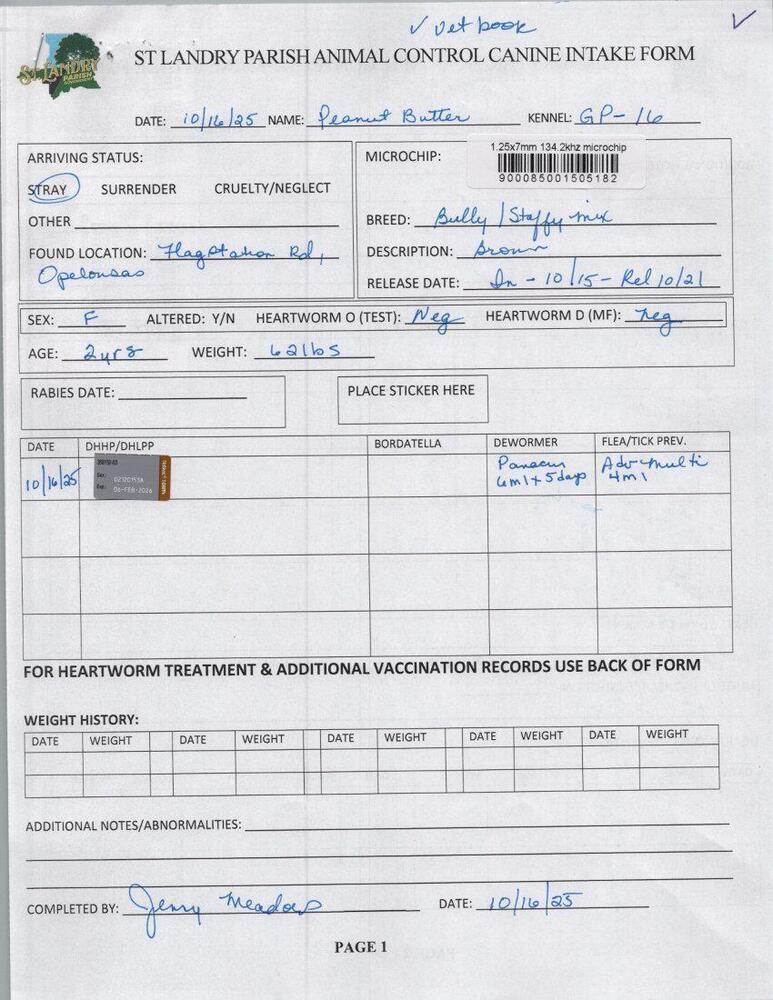 ✓ vet book ✓
ST LANDRY PARISH
ST LANDRY PARISH ANIMAL CONTROL CANINE INTAKE FORM
DATE: 10/16/25 NAME: Peanut Butter KENNEL: GP-16
ARRIVING STATUS:
STRAY SURRENDER CRUELTY/NEGLECT
OTHER
FOUND LOCATION: Flagstation Rd,
Opelousas
MICROCHIP: 1.25x7mm 134.2khz microchip
900085001505182
BREED: Bully / Staffy mix
DESCRIPTION: Brown
RELEASE DATE: In - 10/15 - Rel 10/21
SEX: F ALTERED: Y/N HEARTWORM O (TEST): Neg HEARTWORM D (MF): neg
AGE: 2yrs WEIGHT: 62lbs
RABIES DATE:
PLACE STICKER HERE
DATE DHHP/DHLPP BORDATELLA DEWORMER FLEA/TICK PREV.
10/16/25 02120153A 06-FEB-2026 Panacur 6ml x 5days Advmulti 4ml
FOR HEARTWORM TREATMENT & ADDITIONAL VACCINATION RECORDS USE BACK OF FORM
WEIGHT HISTORY:
DATE WEIGHT DATE WEIGHT DATE WEIGHT DATE WEIGHT DATE WEIGHT
ADDITIONAL NOTES/ABNORMALITIES:
COMPLETED BY: Jenny Meadows DATE: 10/16/25
PAGE 1